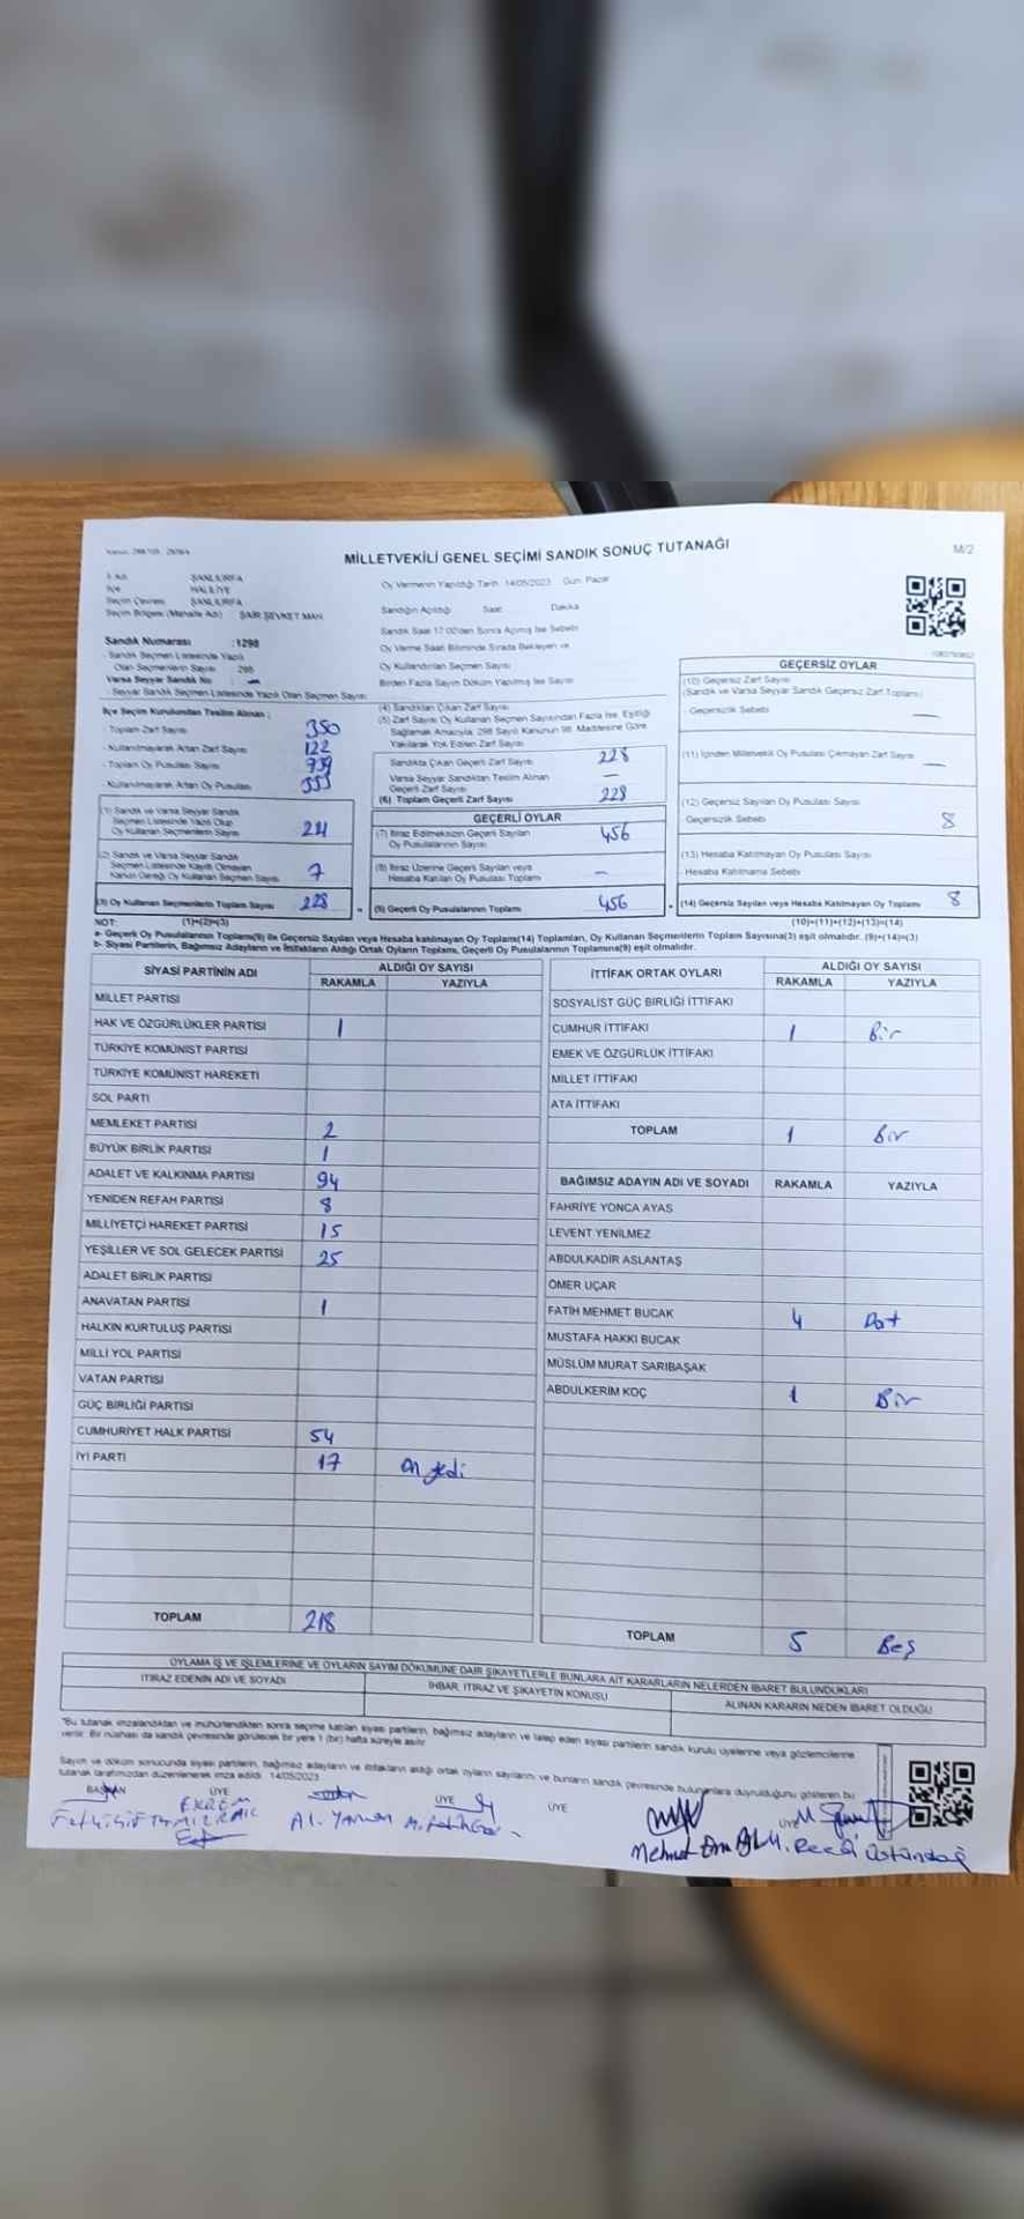 MİLLETVEKİLİ GENEL SEÇİMİ SANDIK SONUÇ TUTANAĞI
M/2
ŞANLIURFA
İlçe HALİLİYE
Seçim Çevresi ŞANLIURFA
Seçim Bölgesi (Mahalle Adı) ŞAİR ŞEVKET MAH.
Sandık Numarası :1298
- Sandık Seçmen Listesinde Yazılı
Olan Seçmenlerin Sayısı 298
Varsa Seyyar Sandık No : —
- Seyyar Sandık Seçmen Listesinde Yazılı Olan Seçmen Sayısı:
İlçe Seçim Kurulundan Teslim Alınan ;
- Toplam Zarf Sayısı 350
- Kullanılmayarak Artan Zarf Sayısı 122
- Toplam Oy Pusulası Sayısı
- Kullanılmayarak Artan Oy Pusulası
(1) Sandık ve Varsa Seyyar Sandık
Seçmen Listesinde Yazılı Olup
Oy Kullanan Seçmenlerin Sayısı
(2) Sandık ve Varsa Seyyar Sandık
Seçmen Listesinde Kayıtlı Olmayan
Kanun Gereği Oy Kullanan Seçmen Sayısı 7
(3) Oy Kullanan Seçmenlerin Toplam Sayısı 228
(1)+(2)=(3)
Oy Vermenin Yapıldığı Tarih : 14/05/2023 Gün: Pazar
Sandığın Açıldığı Saat Dakika
Sandık Saat 17:00'den Sonra Açılmış İse Sebebi
Oy Verme Saati Bitiminde Sırada Bekleyen ve
Oy Kullandırılan Seçmen Sayısı
Birden Fazla Sayım Döküm Yapılmış İse Sayısı
(4) Sandıktan Çıkan Zarf Sayısı
(5) Zarf Sayısı Oy Kullanan Seçmen Sayısından Fazla İse, Eşitliği
Sağlamak Amacıyla, 298 Sayılı Kanunun 98. Maddesine Göre
Yakılarak Yok Edilen Zarf Sayısı
Sandıkta Çıkan Geçerli Zarf Sayısı 228
Varsa Seyyar Sandıktan Teslim Alınan
Geçerli Zarf Sayısı —
(6) Toplam Geçerli Zarf Sayısı 228
GEÇERLİ OYLAR
(7) İtiraz Edilmeksizin Geçerli Sayılan
Oy Pusulalarının Sayısı 456
(8) İtiraz Üzerine Geçerli Sayılan veya
Hesaba Katılan Oy Pusulası Toplamı —
(9) Geçerli Oy Pusulalarının Toplamı 456
GEÇERSİZ OYLAR
(10) Geçersiz Zarf Sayısı
(Sandık ve Varsa Seyyar Sandık Geçersiz Zarf Toplamı)
- Geçersizlik Sebebi —
(11) İçinden Milletvekili Oy Pusulası Çıkmayan Zarf Sayısı —
(12) Geçersiz Sayılan Oy Pusulası Sayısı
Geçersizlik Sebebi 8
(13) Hesaba Katılmayan Oy Pusulası Sayısı
Hesaba Katılmama Sebebi
(14) Geçersiz Sayılan veya Hesaba Katılmayan Oy Toplamı 8
(10)+(11)+(12)+(13)=(14)
NOT:
a- Geçerli Oy Pusulalarının Toplamı(9) ile Geçersiz Sayılan veya Hesaba katılmayan Oy Toplamı(14) Toplamları, Oy Kullanan Seçmenlerin Toplam Sayısına(3) eşit olmalıdır. (9)+(14)=(3)
b- Siyasi Partilerin, Bağımsız Adayların ve İttifakların Aldığı Ortak Oyların Toplamı, Geçerli Oy Pusulalarının Toplamına(9) eşit olmalıdır.
SİYASİ PARTİNİN ADI ALDIĞI OY SAYISI
RAKAMLA YAZIYLA
MİLLET PARTİSİ
HAK VE ÖZGÜRLÜKLER PARTİSİ 1
TÜRKİYE KOMÜNİST PARTİSİ
TÜRKİYE KOMÜNİST HAREKETİ
SOL PARTİ
MEMLEKET PARTİSİ 2
BÜYÜK BİRLİK PARTİSİ 1
ADALET VE KALKINMA PARTİSİ 94
YENİDEN REFAH PARTİSİ 8
MİLLİYETÇİ HAREKET PARTİSİ 15
YEŞİLLER VE SOL GELECEK PARTİSİ 25
ADALET BİRLİK PARTİSİ
ANAVATAN PARTİSİ 1
HALKIN KURTULUŞ PARTİSİ
MİLLİ YOL PARTİSİ
VATAN PARTİSİ
GÜÇ BİRLİĞİ PARTİSİ
CUMHURİYET HALK PARTİSİ 54
İYİ PARTİ 17 on yedi
TOPLAM 218
İTTİFAK ORTAK OYLARI ALDIĞI OY SAYISI
RAKAMLA YAZIYLA
SOSYALİST GÜÇ BİRLİĞİ İTTİFAKI
CUMHUR İTTİFAKI 1 Bir
EMEK VE ÖZGÜRLÜK İTTİFAKI
MİLLET İTTİFAKI
ATA İTTİFAKI
TOPLAM 1 Bir
BAĞIMSIZ ADAYIN ADI VE SOYADI RAKAMLA YAZIYLA
FAHRİYE YONCA AYAS
LEVENT YENİLMEZ
ABDULKADİR ASLANTAŞ
ÖMER UÇAR
FATİH MEHMET BUCAK 4 Dört
MUSTAFA HAKKI BUCAK
MÜSLÜM MURAT SARIBAŞAK
ABDULKERİM KOÇ 1 Bir
TOPLAM 5 Beş
OYLAMA İŞ VE İŞLEMLERİNE VE OYLARIN SAYIM DÖKÜMÜNE DAİR ŞİKAYETLERLE BUNLARA AİT KARARLARIN NELERDEN İBARET BULUNDUKLARI
İTİRAZ EDENİN ADI VE SOYADI İHBAR, İTİRAZ VE ŞİKAYETİN KONUSU ALINAN KARARIN NEDEN İBARET OLDUĞU
"Bu tutanak imzalandıktan ve mühürlendikten sonra seçime katılan siyasi partilerin, bağımsız adayların ve talep eden siyasi partilerin sandık kurulu üyelerine veya gözlemcilerine
verilir. Bir nüshası da sandık çevresinde görülecek bir yere 1 (bir) hafta süreyle asılır.
Sayım ve döküm sonucunda siyasi partilerin, bağımsız adayların ve ittifakların aldığı ortak oyların sayılarını ve bunların sandık çevresinde bulunanlara duyurulduğunu gösteren bu
tutanak tarafımızdan düzenlenerek imza edildi. 14/05/2023
BAŞKAN ÜYE ÜYE ÜYE ÜYE
EKREM